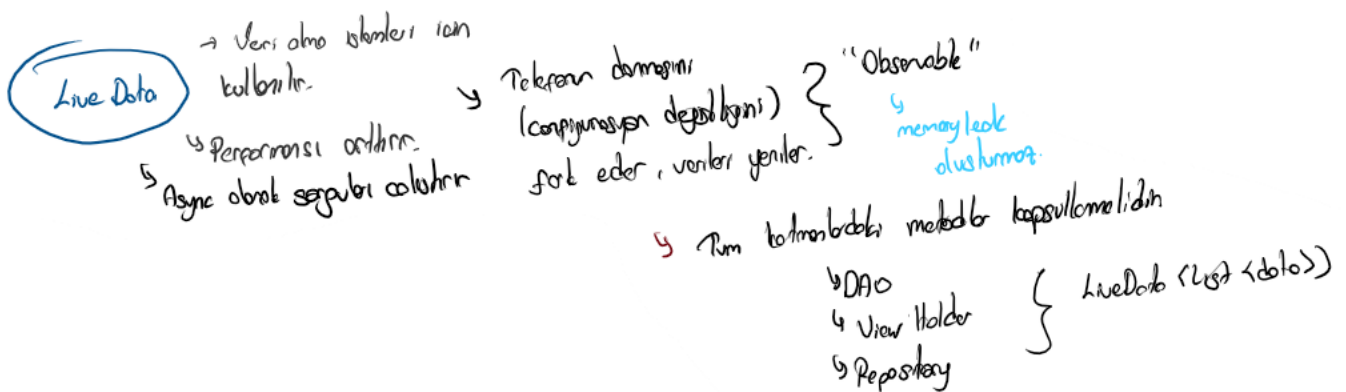 Live Data
→ Veri alma işlemleri için
kullanılır.
↳ Performansı arttırır.
↳ Async olarak sorguları çalıştırır
↳ Telefonun dönmesini
(configurasyon değişikliğini)
fark eder, verileri yeniler.
"Observable"
↳
memory leak
oluşturmaz.
↳ Tüm katmanlardaki metodlar kapsüllemelidir
↳ DAO
↳ View Holder
↳ Repository
LiveData <List <data>>